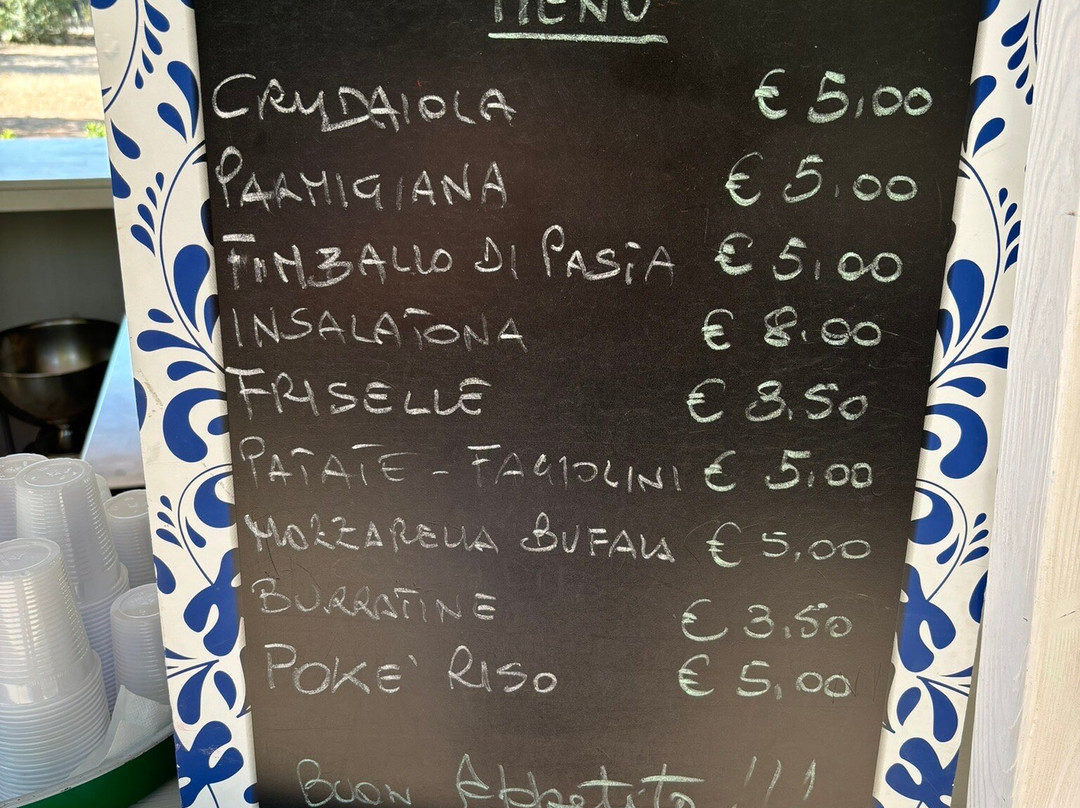 MENU
CRUDAIOLA € 5,00
PARMIGIANA € 5,00
TIMBALLO DI PASTA € 5,00
INSALATONA € 8,00
FRISELLE € 3,50
PATATE - FAGIOLINI € 5,00
MOZZARELLA BUFALA € 5,00
BURRATINE € 3,50
POKE' RISO € 5,00
BUON APPETITO !!!